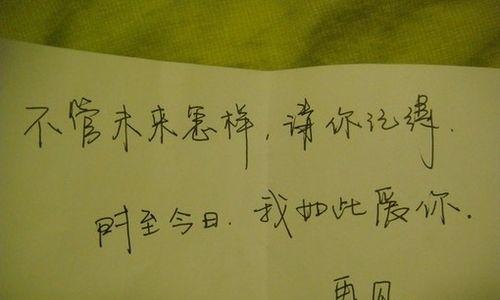 不管未来怎样,请你记得.
时至今日.我如此爱你.
再见